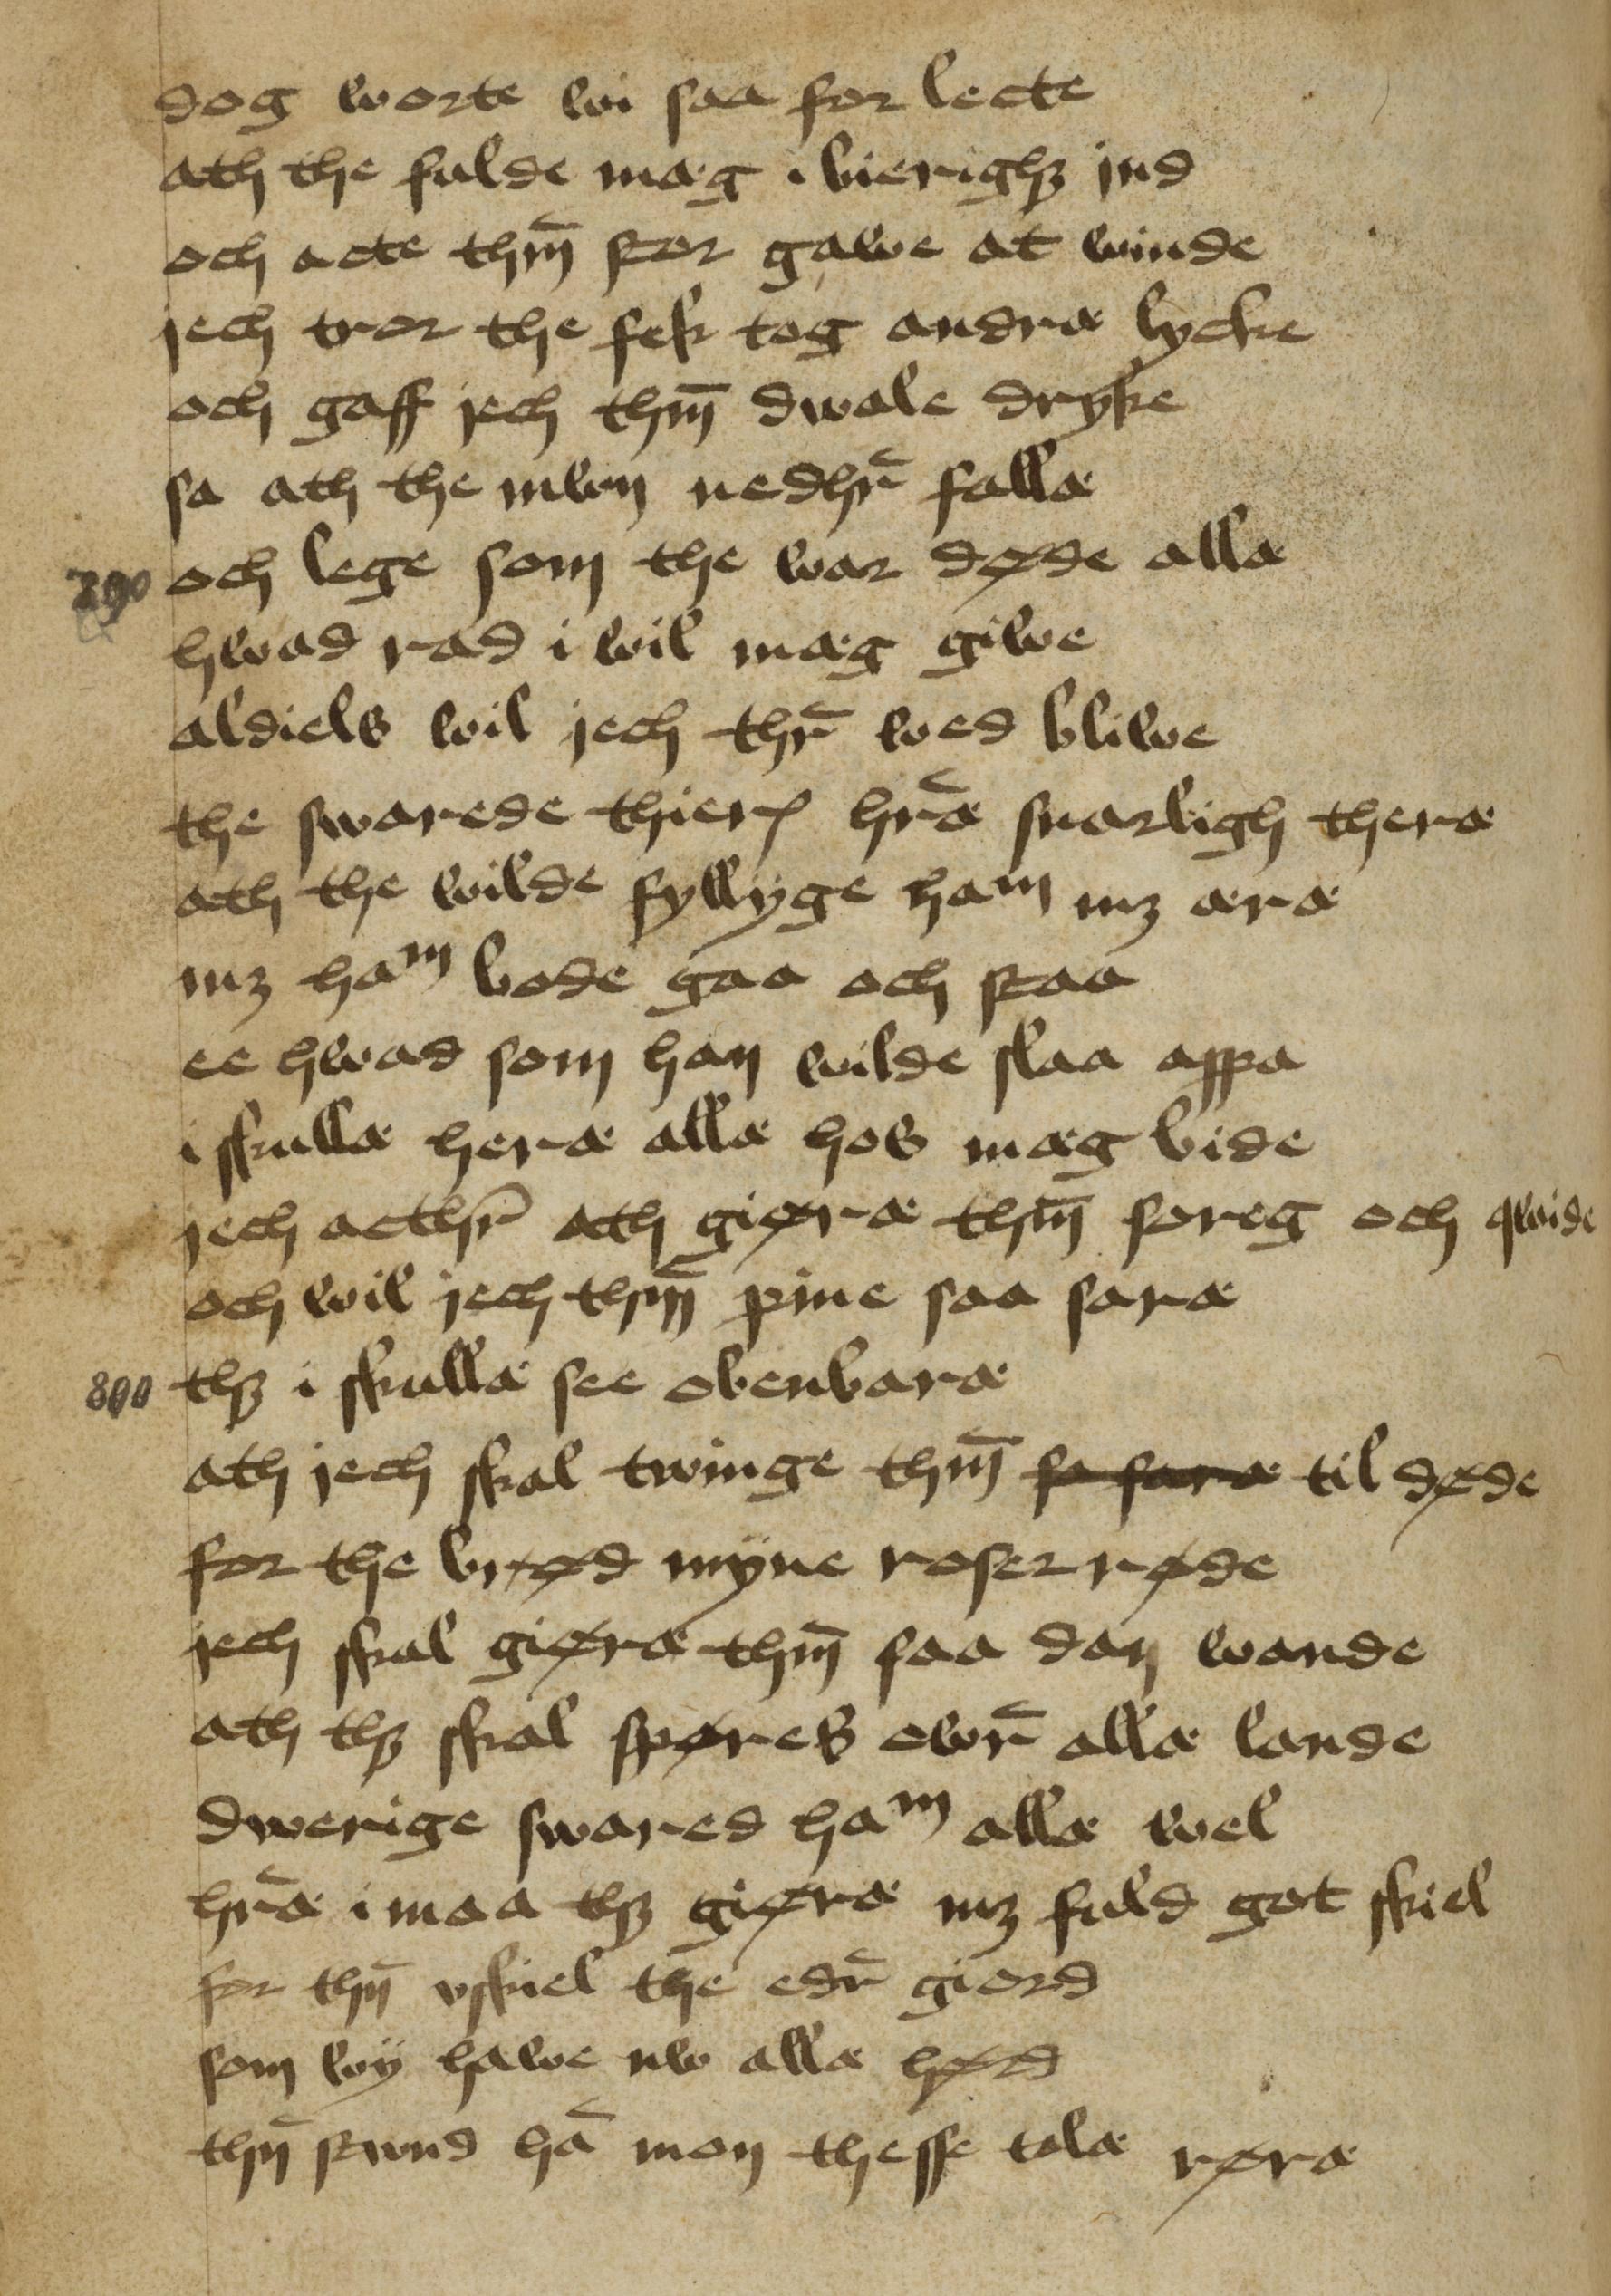 dog worte wi saa for lecte
ath the fulde mæg i bierighꝫ jnd
och acte thm̄ stor gawe at winde
jech tror the fek tog andræ lycke
och gaff jech thm̄ dwale dryke
sa ath the mwn nedhr̄ fallæ
790 och lege som the war døde allæ
hwad rad i wil mæg giwe
aldiels wil jech thr̄ wed bliwe
the swarede thieræ hr̄æ snarligh theræ
ath the wilde fyllyge ham mꝫ æræ
mꝫ ham bode gaa och staa
ee hwad som han wilde slaa appa
i skullæ heræ allæ hos mæg bide
jech acthr̄ ath giøræ thm̄ soreg och qwide
och wil jech thm̄ pine saa saræ
800 thꝫ i skullæ see obenbaræ
ath jech skal twinge thm̄ sa saræ til døde
for the brød myne roser røde
jech skal giøræ thm̄ saa dan wande
ath thꝫ skal spøres owr̄ allæ lande
dwerige swared ham allæ wel
hr̄æ i maa thꝫ giøræ mꝫ fuld got skiel
for thn̄ vskiel the edr̄ giord
som wy hawe nw allæ hød
thn̄ stund hā mon thesse talæ røræ